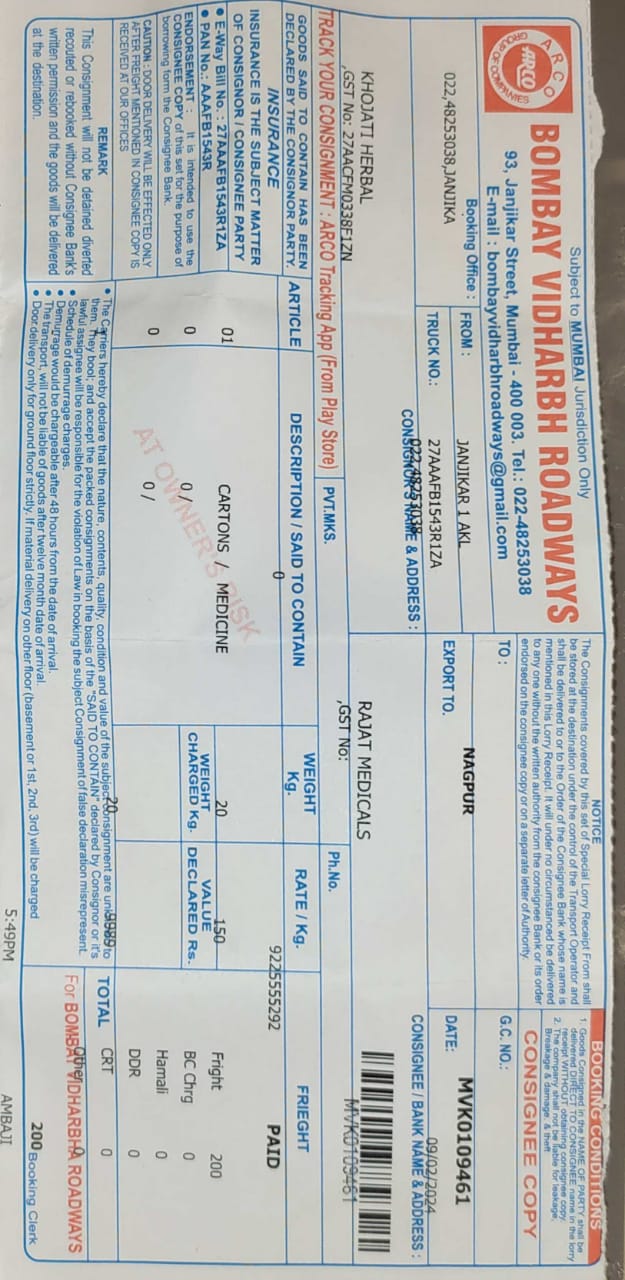 Subject to MUMBAI Jurisdiction Only
ARCO
ARCO
GROUP OF COMPANIES
BOMBAY VIDHARBH ROADWAYS
93, Janjikar Street, Mumbai - 400 003. Tel.: 022-48253038
E-mail : bombayvidharbhroadways@gmail.com
NOTICE
The Consignments covered by this set of Special Lorry Receipt From shall
be stored at the destination under the control of the Transport Operator and
shall be delivered to or to the Order of the Consignee Bank whose name is
mentioned in this Lorry Receipt. It will under no circumstanced be delivered
to any one without the written authority from the consignee Bank or its order
endorsed on the consignee copy or on a separate letter of Authority.
BOOKING CONDITIONS
1. Goods Consigned in the NAME OF PARTY shall be
delivered DIRECT TO CONSIGNEE name in the lorry
receipt WITHOUT obtaining consignee copy.
2. The company shall not be liable for leakage,
Breakage & damage, & theft
CONSIGNEE COPY
Booking Office :
022,48253038,JANJIKA
FROM :
JANJIKAR 1 AKL
TO :
NAGPUR
G.C. NO.:
MVK0109461
TRUCK NO.:
27AAAFB1543R1ZA
EXPORT TO.
DATE:
09/02/2024
CONSIGNOR'S NAME & ADDRESS :
022,48253038
CONSIGNEE / BANK NAME & ADDRESS :
KHOJATI HERBAL
,GST No: 27AACFM0338F1ZN
RAJAT MEDICALS
,GST No:
MVK0109461
TRACK YOUR CONSIGNMENT : ARCO Tracking App (From Play Store)
PVT.MKS.
Ph.No.
9225555292
GOODS SAID TO CONTAIN HAS BEEN
DECLARED BY THE CONSIGNOR PARTY.
ARTICLE
DESCRIPTION / SAID TO CONTAIN
0
WEIGHT
Kg.
RATE / Kg.
FRIEGHT
PAID
INSURANCE
INSURANCE IS THE SUBJECT MATTER
OF CONSIGNOR / CONSIGNEE PARTY
• E-Way Bill No. : 27AAAFB1543R1ZA
• PAN No.: AAAFB1543R
01
CARTONS / MEDICINE
20
150
Fright 200
WEIGHT
CHARGED Kg.
VALUE
DECLARED Rs.
BC Chrg 0
ENDORSEMENT : It is intended to use the
CONSIGNEE COPY of this set for the purpose of
borrowing form the Consignee Bank.
0
0 /
Hamali 0
CAUTION : DOOR DELIVERY WILL BE EFFECTED ONLY
AFTER FREIGHT MENTIONED IN CONSIGNEE COPY IS
RECEIVED AT OUR OFFICES
0
0 /
AT OWNER'S RISK
DDR 0
20
9989
CRT 0
TOTAL
Other 0
REMARK
This Consignment will not be detained diverted
recouted or rebooked without Consignee Bank's
written permission and the goods will be delivered
at the destination.
• The Carriers hereby declare that the nature, contents, quality, condition and value of the subject consignment are unknown to
them. They bool; and accept the packed consignments on the basis of the "SAID TO CONTAIN" declared by Consignor or it's
lawful assignee will be responsible for the violation of Law in booking the subject Consignment of false declaration misrepresent.
• Schedule of demurrage charges.
• Demurrage would be chargeable after 48 hours from the date of arrival.
• The transport, will not be liable of goods after twelve month date of arrival.
• Door delivery only for ground floor strictly. If material delivery on other floor (basement or 1st, 2nd, 3rd) will be charged
For BOMBAY VIDHARBHA ROADWAYS
200 Booking Clerk
5:49PM
AMBAJI